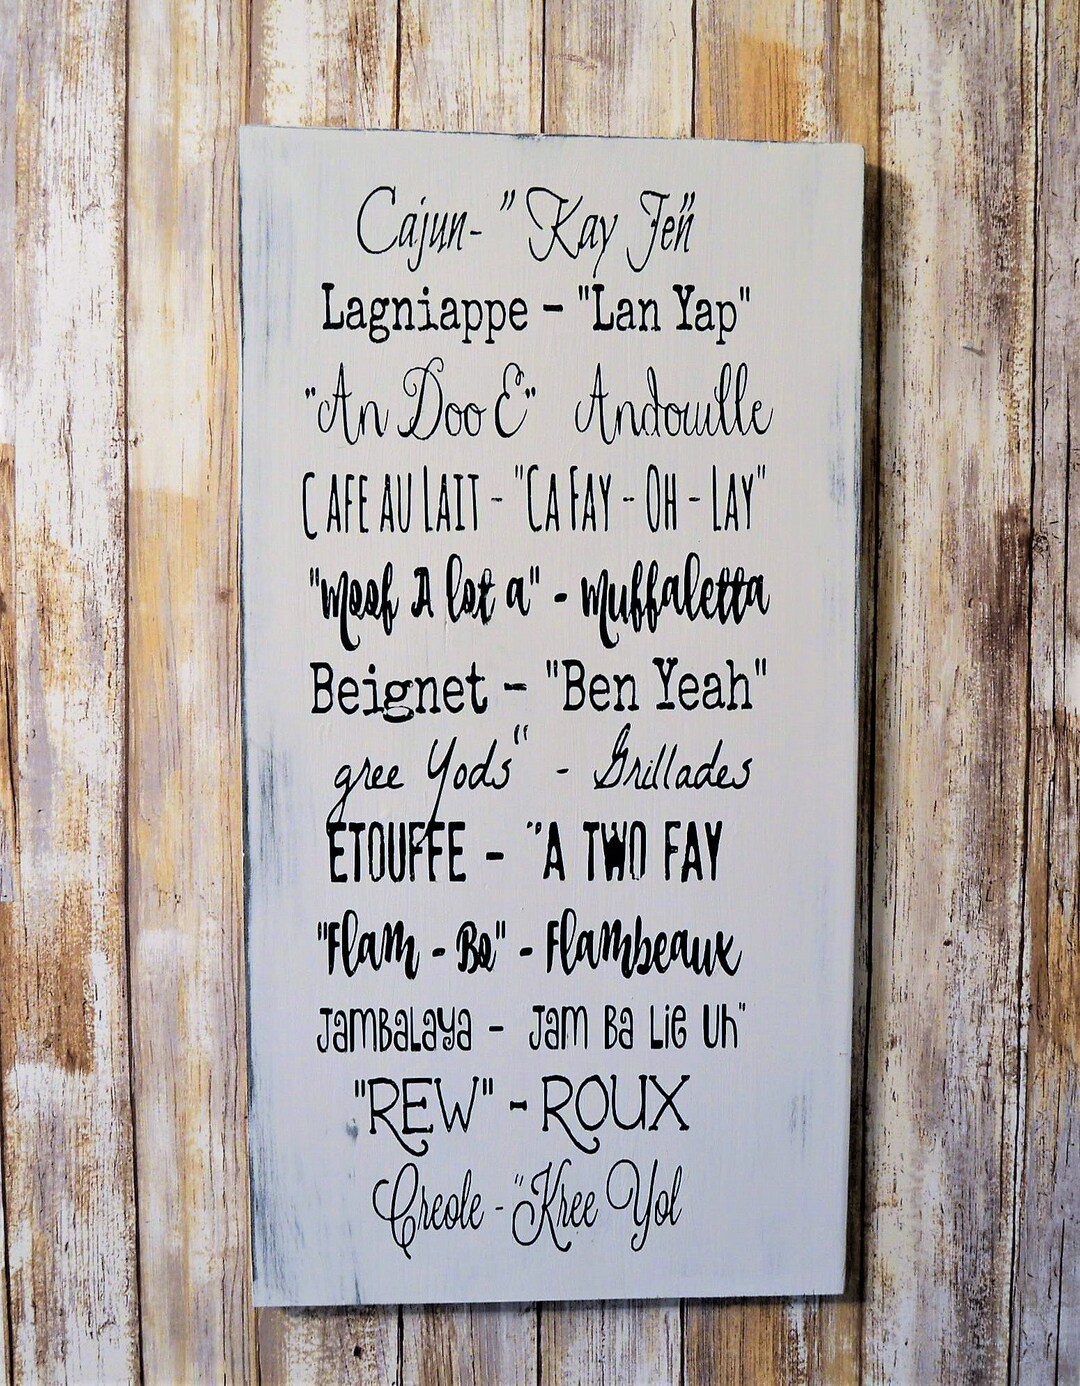 Cajun- "Kay Jen"
Lagniappe - "Lan Yap"
"An Doo E" Andouille
CAFE AU LAIT - "CA FAY - OH - LAY"
"Moof A lot a" - Muffaletta
Beignet - "Ben Yeah"
gree Yods" - Grillades
ETOUFFE - "A TWO FAY
"Flam - Bo" - Flambeaux
Jambalaya - Jam Ba Lie Uh"
"REW" - ROUX
Creole - "Kree Yol